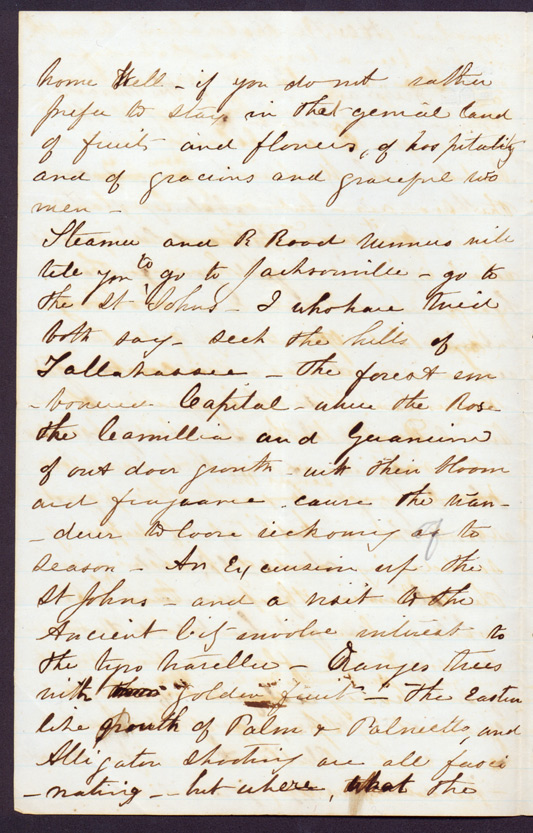 home well - if you do not rather
prefer to stay in that genial land
of fruit and flowers, of hospitality
and of gracious and graceful wo
men -
Steamer and R Road runners will
tell you to go to Jacksonville - go to
the St Johns - I who have tried
both say - seek the hills of
Tallahassee - The forest em
- bowered Capital - where the Rose
the Camillia and Geranium
of out door growth - with their bloom
and fragrance cause the wan-
- derer to loose reckoning of to
season - An Excursion up the
St Johns - and a visit to the
Ancient City involve interest to
the tyro traveller - Oranges trees
with golden fruit - The Eastern
like growth of Palm & Palmetto, and
Alligator shooting are all fasci
- nating - but where, what the